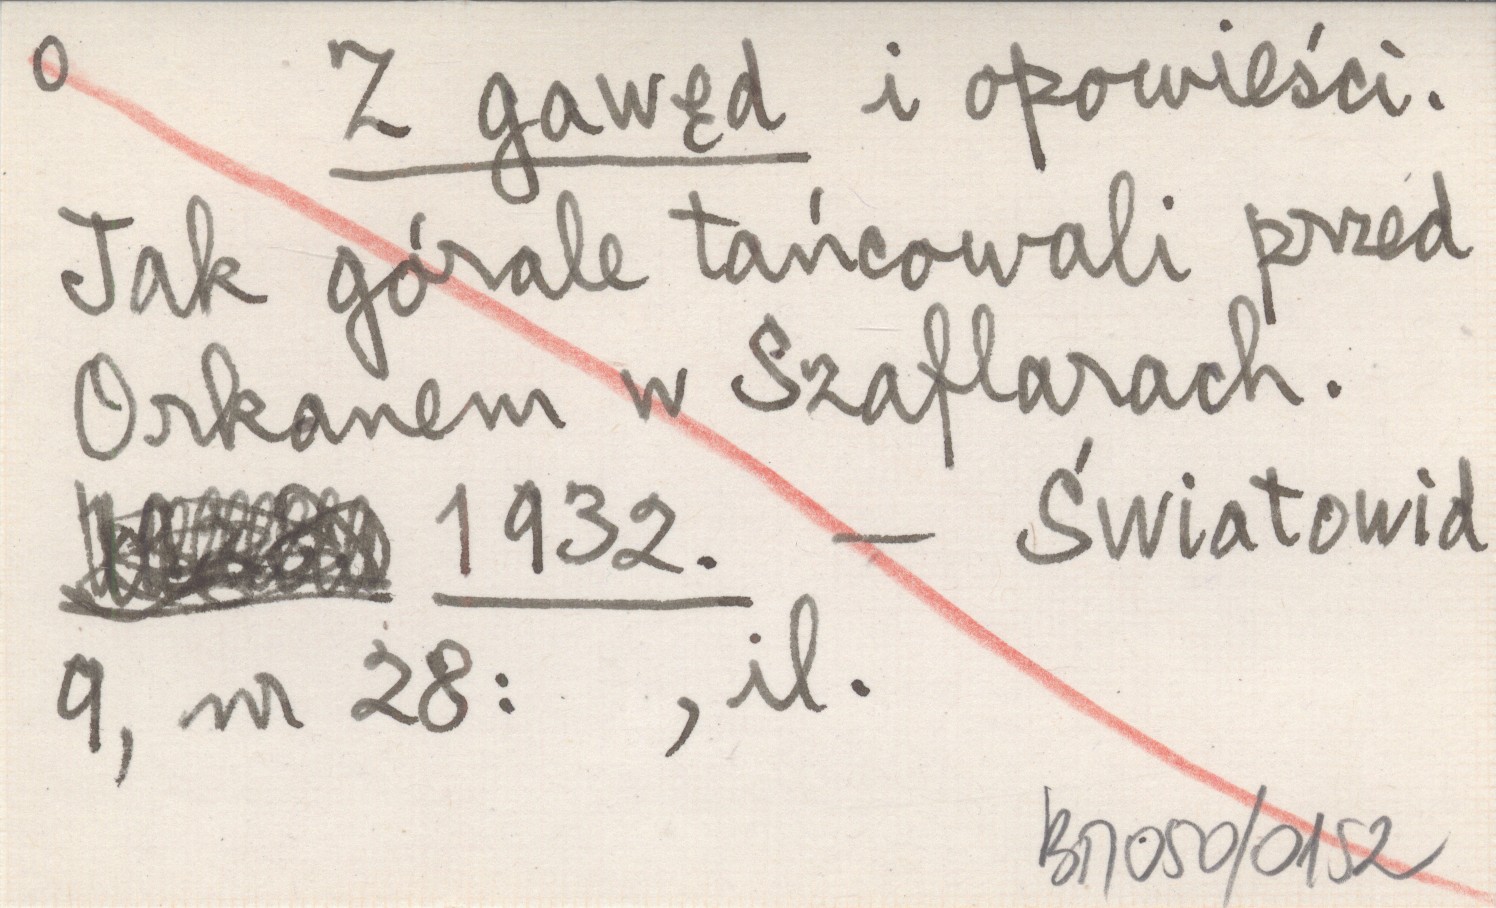 O Z gawęd i opowieści.
Jak górale tańcowali przed
Orkanem w Szaflarach.
1932. — Światowid
9, nr 28: , il.
BN 050/0152